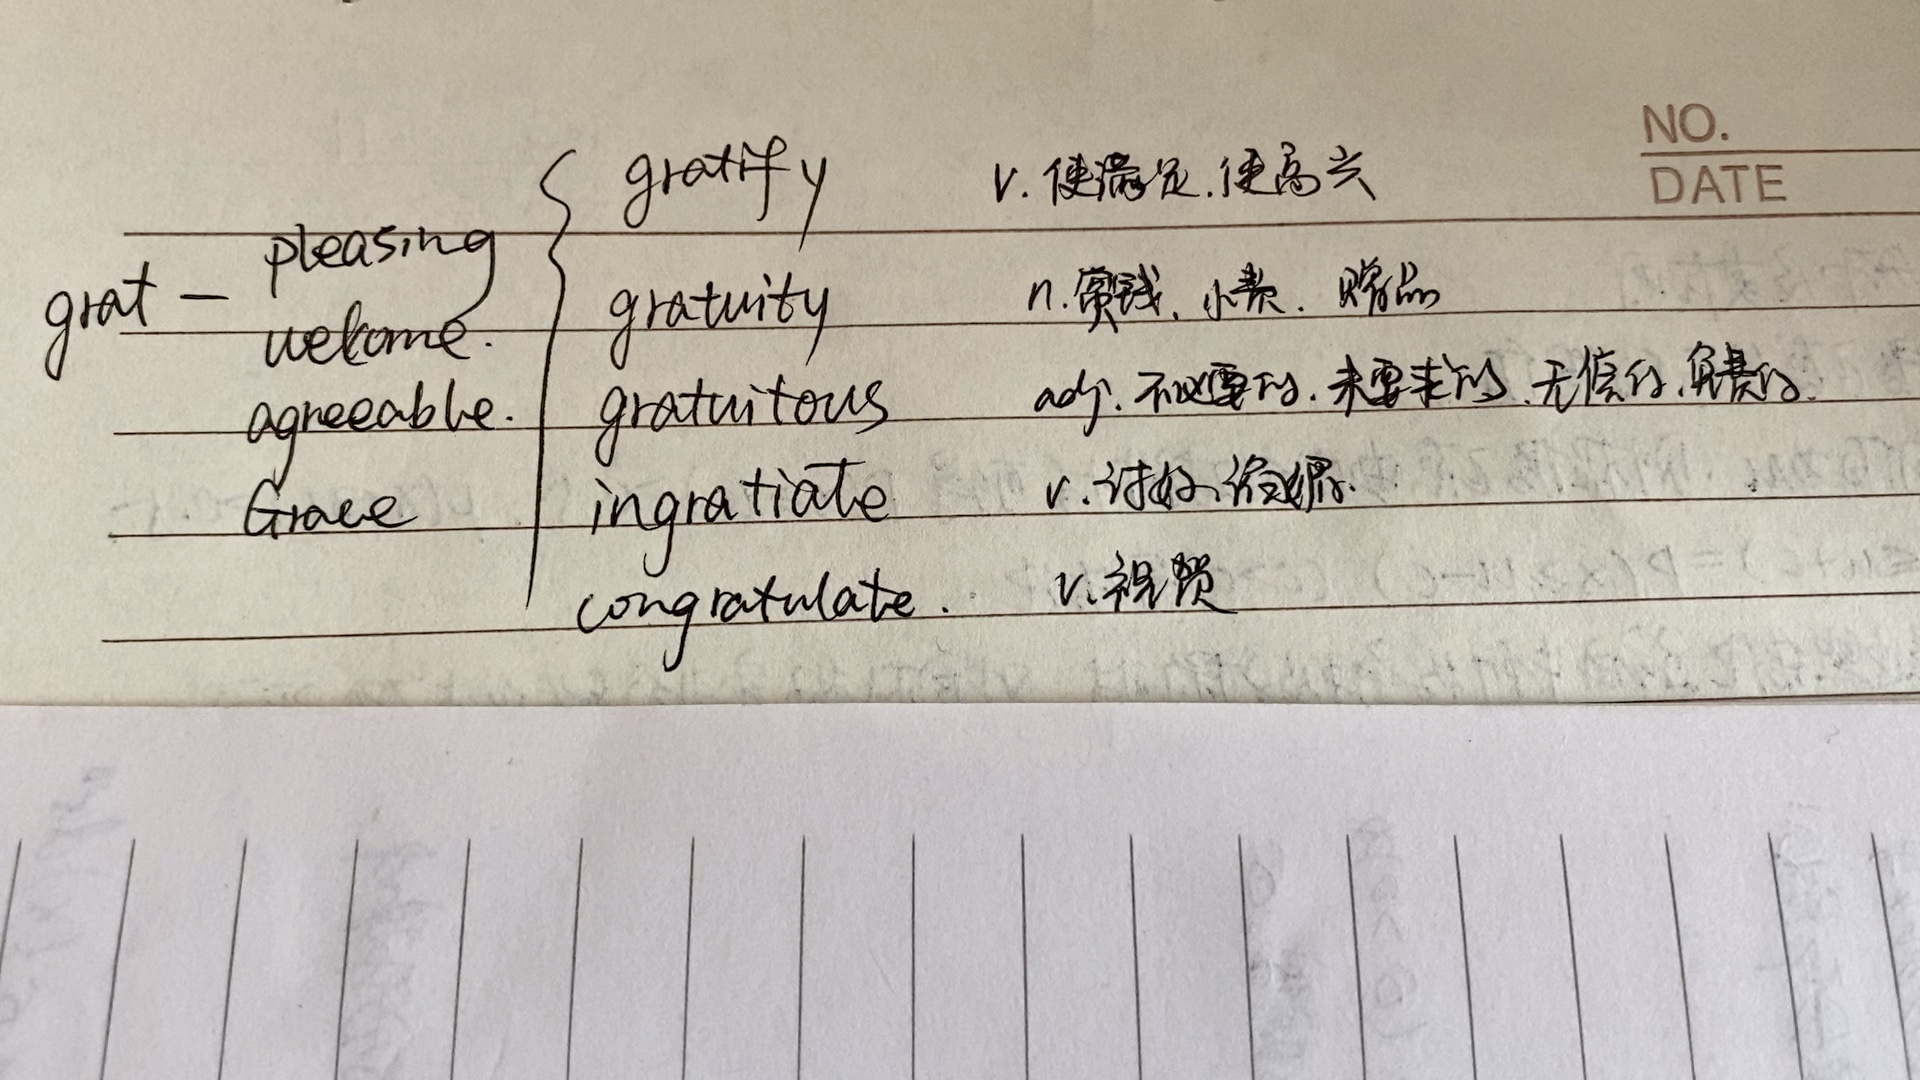 NO.
DATE
grat — pleasing
welcome.
agreeable.
Grace
gratify v. 使满足、使高兴
gratuity n. 赏钱、小费、赠品
gratuitous adj. 不必要的、未要求的、无偿的、免费的.
ingratiate v. 讨好、谄媚.
congratulate. v. 祝贺